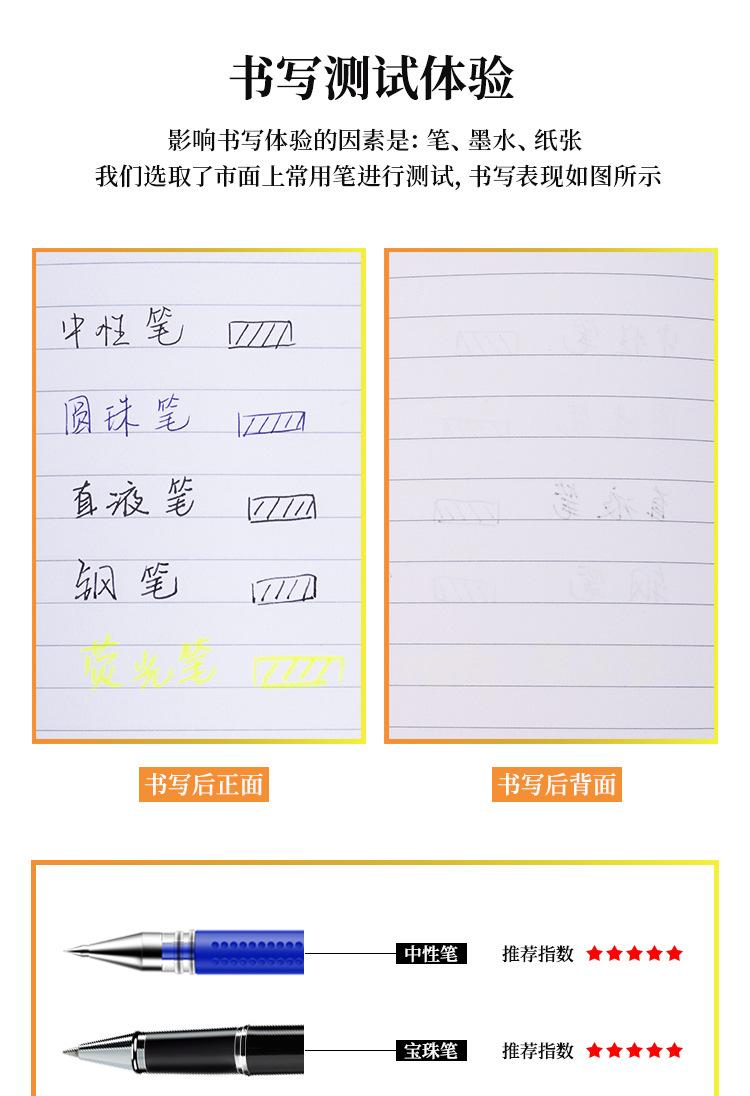 书写测试体验
影响书写体验的因素是：笔、墨水、纸张
我们选取了市面上常用笔进行测试，书写表现如图所示
中性笔
圆珠笔
直液笔
钢笔
荧光笔
中性笔
直液笔
钢笔
书写后正面
书写后背面
中性笔 推荐指数
宝珠笔 推荐指数